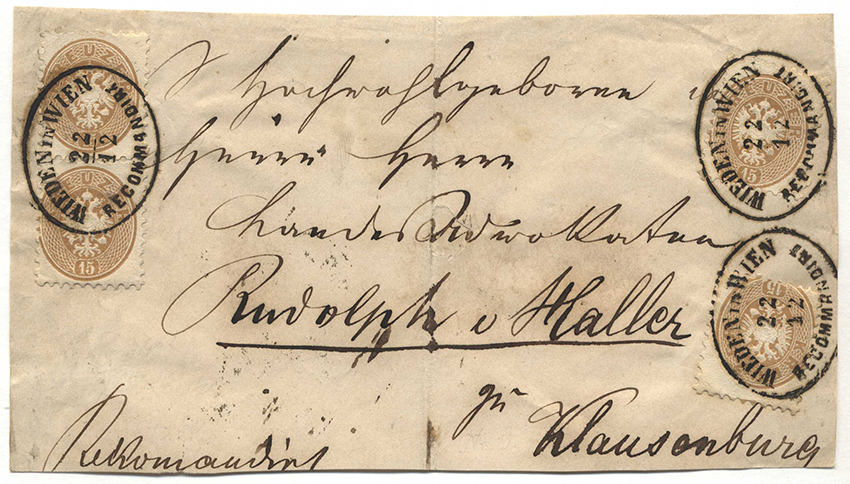 S Hochwohlgeboren
Herrn Herrn
Landes Advokaten
Rudolph v Haller
zu
Klausenburg
Rekomandirt
WIEDEN IN WIEN
22
12
RECOMMANDIRT
15
WIEDEN IN WIEN
22
12
RECOMMANDIRT
15
WIEDEN IN WIEN
22
12
RECOMMANDIRT
15